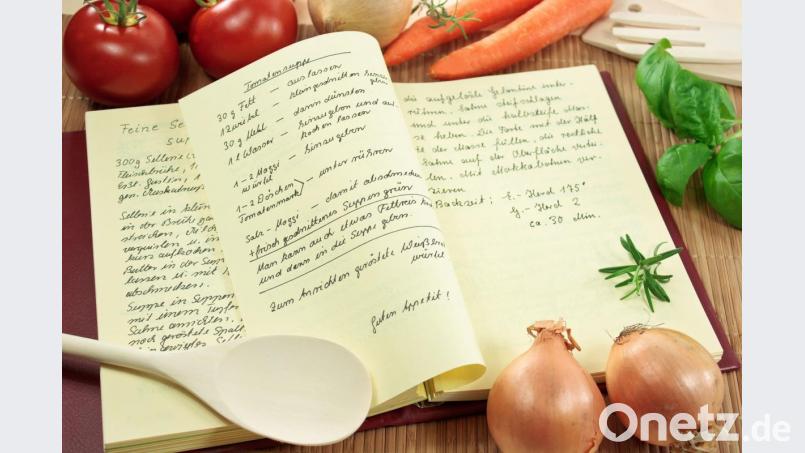 Feine Se
Sup
300g Sellerie (
Fleischbrühe, 1
Sellerie in klein
in der Brühe gar
streichen, Milch
verquirlen u. in
kurz aufkochen.
Butter in der Sup
lassen u. mit
abschmecken.
Suppe in Suppen
mit einem Tupfer
Sahne anrichten.
noch geröstete
Tomatensuppe
30 g Fett – auslassen
1 Zwiebel – kleingeschnitten hinzu
geben
30 g Mehl – darin dünsten
1 l Wasser – hinzugeben und auf-
kochen lassen
1-2 Maggi
würfel – hinzugeben
1-2 Döschen
Tomatenmark – unterrühren
Salz - Maggi – damit abschmecken
+ frisch geschnittenes Suppengrün
Man kann auch etwas Fettreis
und dann in die Suppe geben.
Zum Anrichten geröstete Weißbrot
würfel
Guten Appetit!
die aufgelöste Gelatine unter-
rühren. Sahne steifschlagen
und unter die halbsteife Mas-
se heben. Die Torte mit der Hälf
te der Masse füllen, die restliche
Sahne auf der Oberfläche
len. Mit Mokkabohnen ver-
zieren
Backzeit: E.-Herd 175°
G.-Herd 2
ca. 30 Min.
Onetz.de